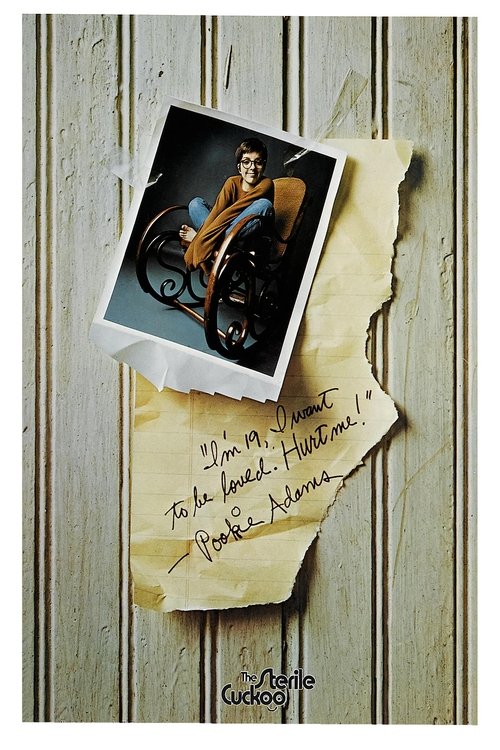 "I'm 19, I want
to be loved. Hurt me!"
- Pookie Adams
The Sterile
Cuckoo